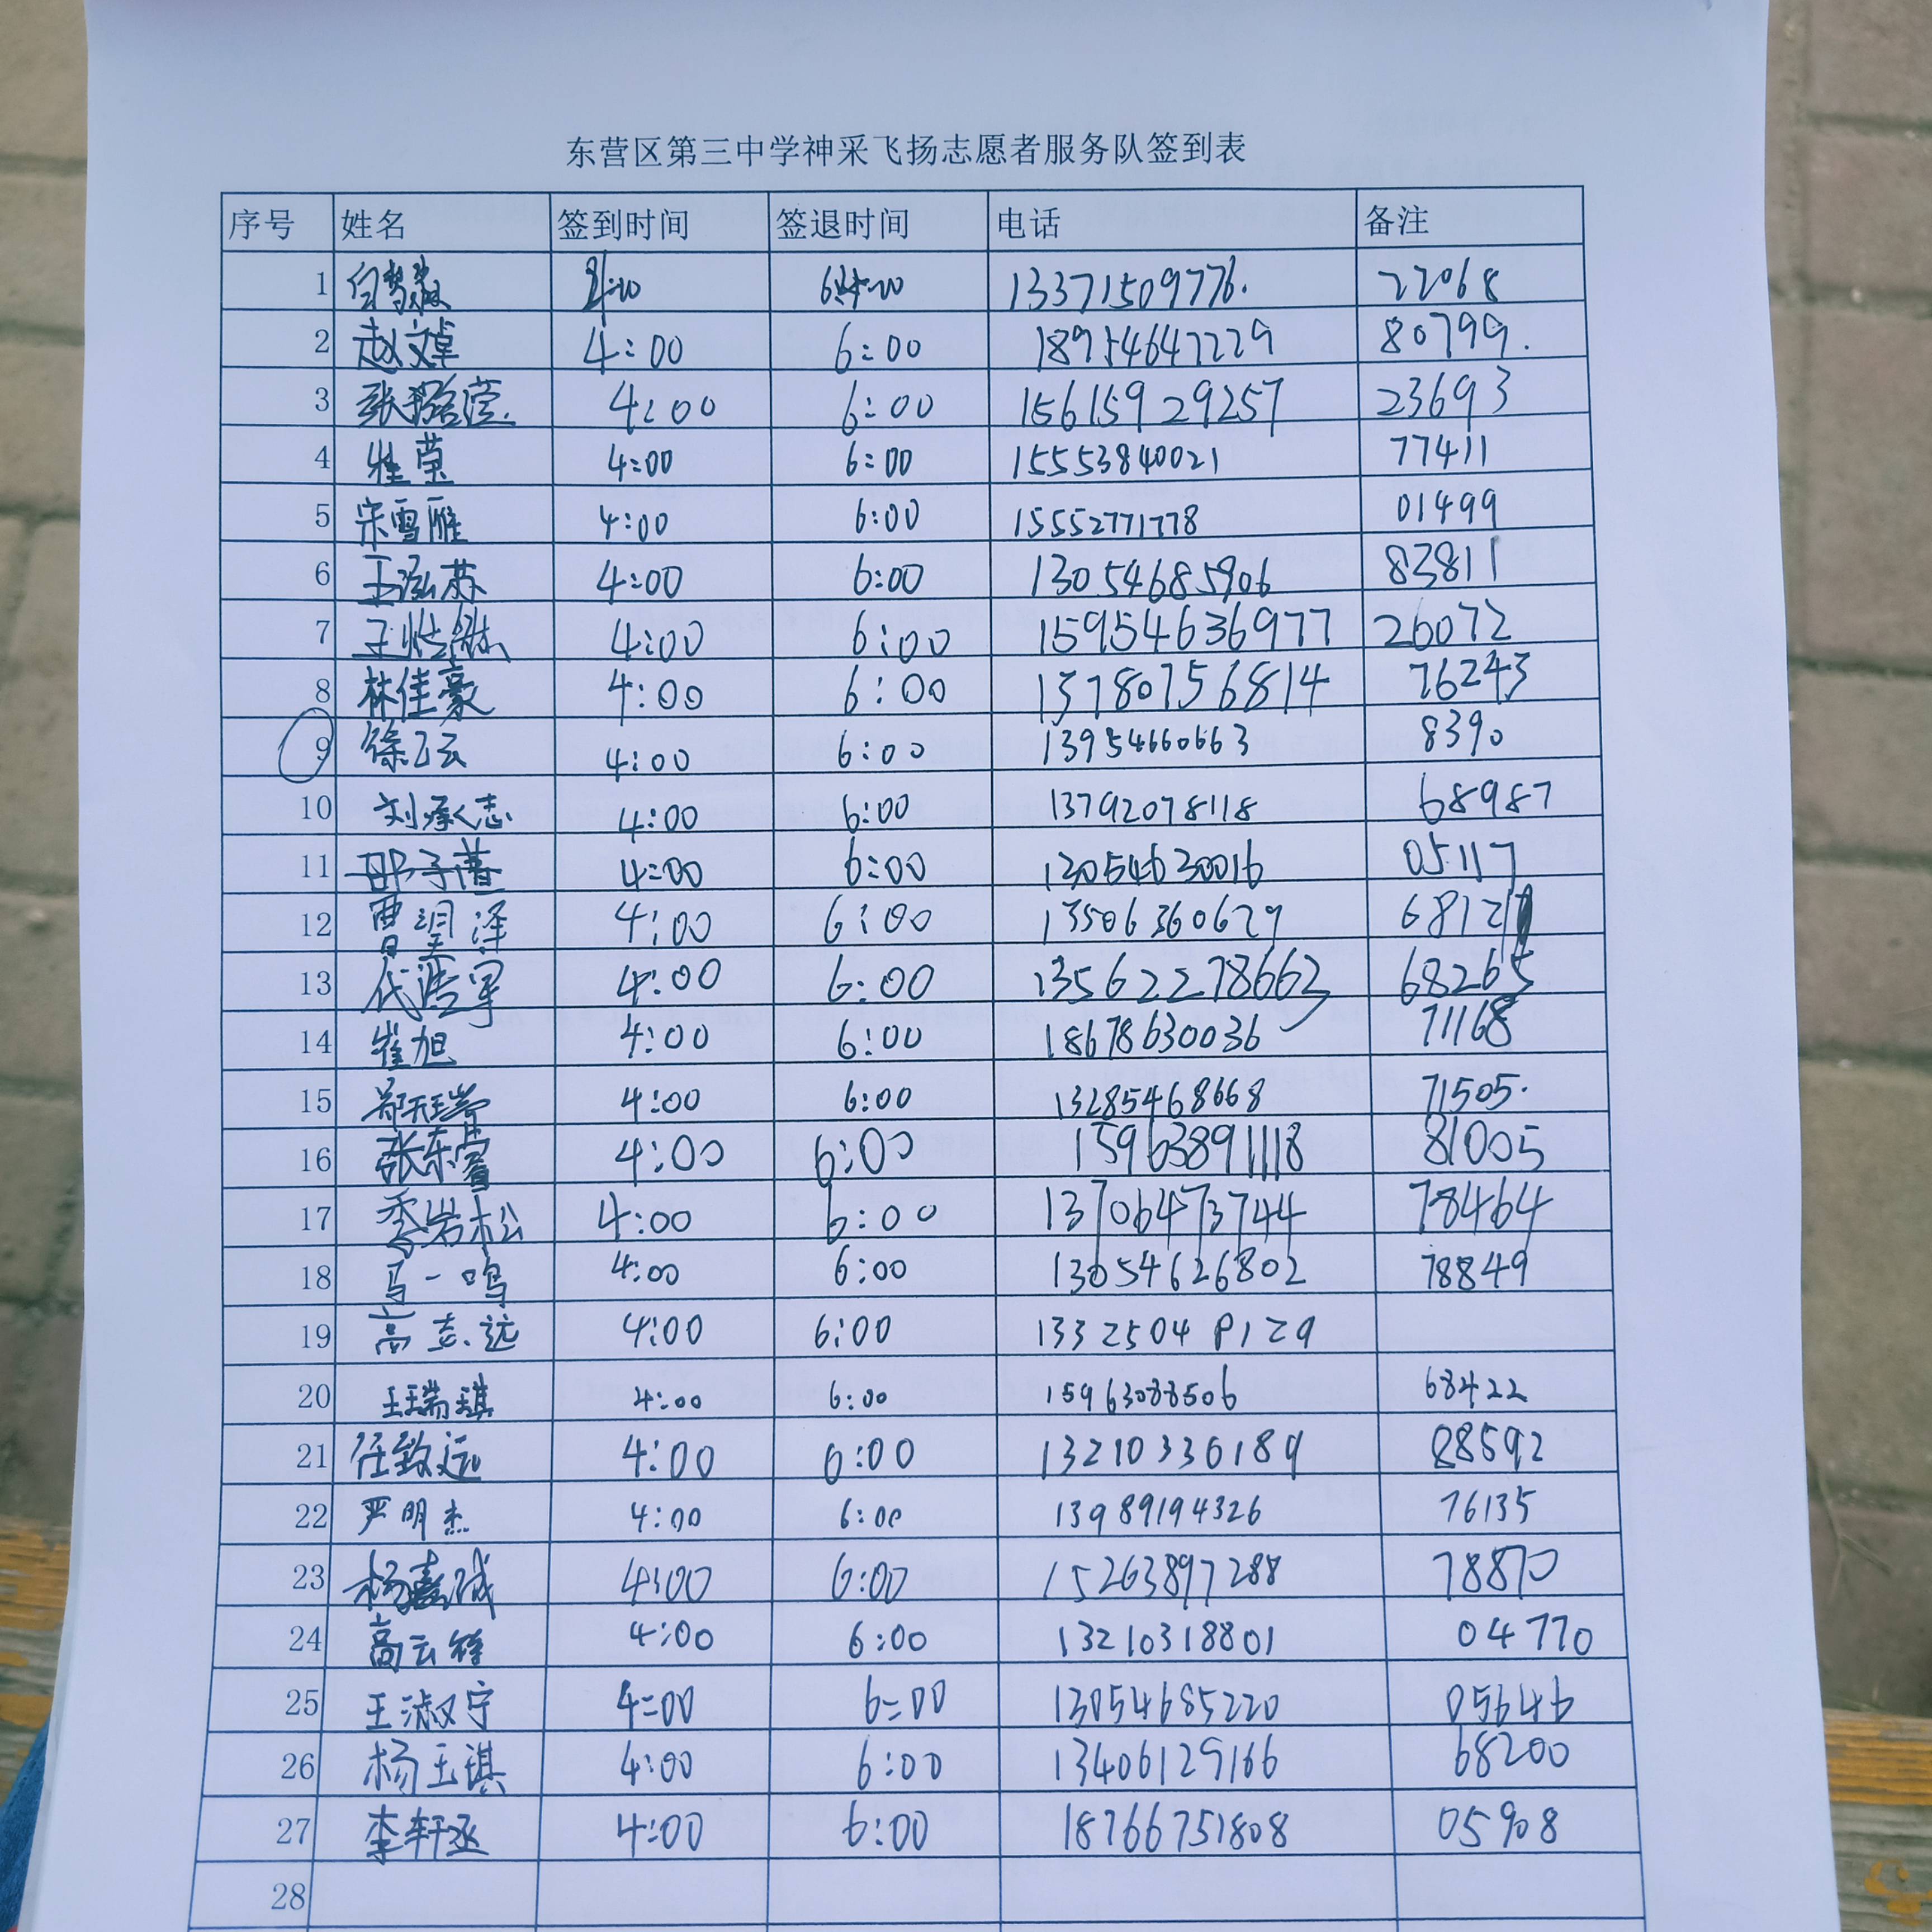 东营区第三中学神采飞扬志愿者服务队签到表
序号 姓名 签到时间 签退时间 电话 备注
1 13371509776. 22068
2 赵文卓 4:00 6:00 18954647229 80799.
3 张 滢 4:00 6:00 15615929257 23693
4 4:00 6:00 15553840021 77411
5 宋雪雁 4:00 6:00 15552771778 01499
6 王泓苏 4:00 6:00 13054685906 83811
7 王 4:00 6:00 15954636977 26072
8 林佳豪 4:00 6:00 13780756814 76243
9 徐云 4:00 6:00 13954660663 8390
10 刘承志 4:00 6:00 13792078118 68987
11 4:00 6:00 13054630016 05117
12 曹 泽 4:00 6:00 13506360629 6812
13 代浩军 4:00 6:00 13562278663 68265
14 崔旭 4:00 6:00 18678630036 71168
15 郑天瑞 4:00 6:00 13285468668 71505.
16 张东 4:00 6:00 15963891118 81005
17 季岩松 4:00 6:00 13706473744 78464
18 马一鸣 4:00 6:00 13054626802 78849
19 高志远 4:00 6:00
20 王瑞琪 4:00 6:00 15963088506 68422
21 任致远 4:00 6:00 13210336189 88592
22 严明杰 4:00 6:00 13989194326 76135
23 杨嘉诚 4:00 6:00 15263897288 78870
24 高云 4:00 6:00 13210318801 04770
25 王淑宁 4:00 6:00 13054685220 05646
26 杨玉琪 4:00 6:00 13406129166 68200
27 李轩丞 4:00 6:00 18766751808 05908
28